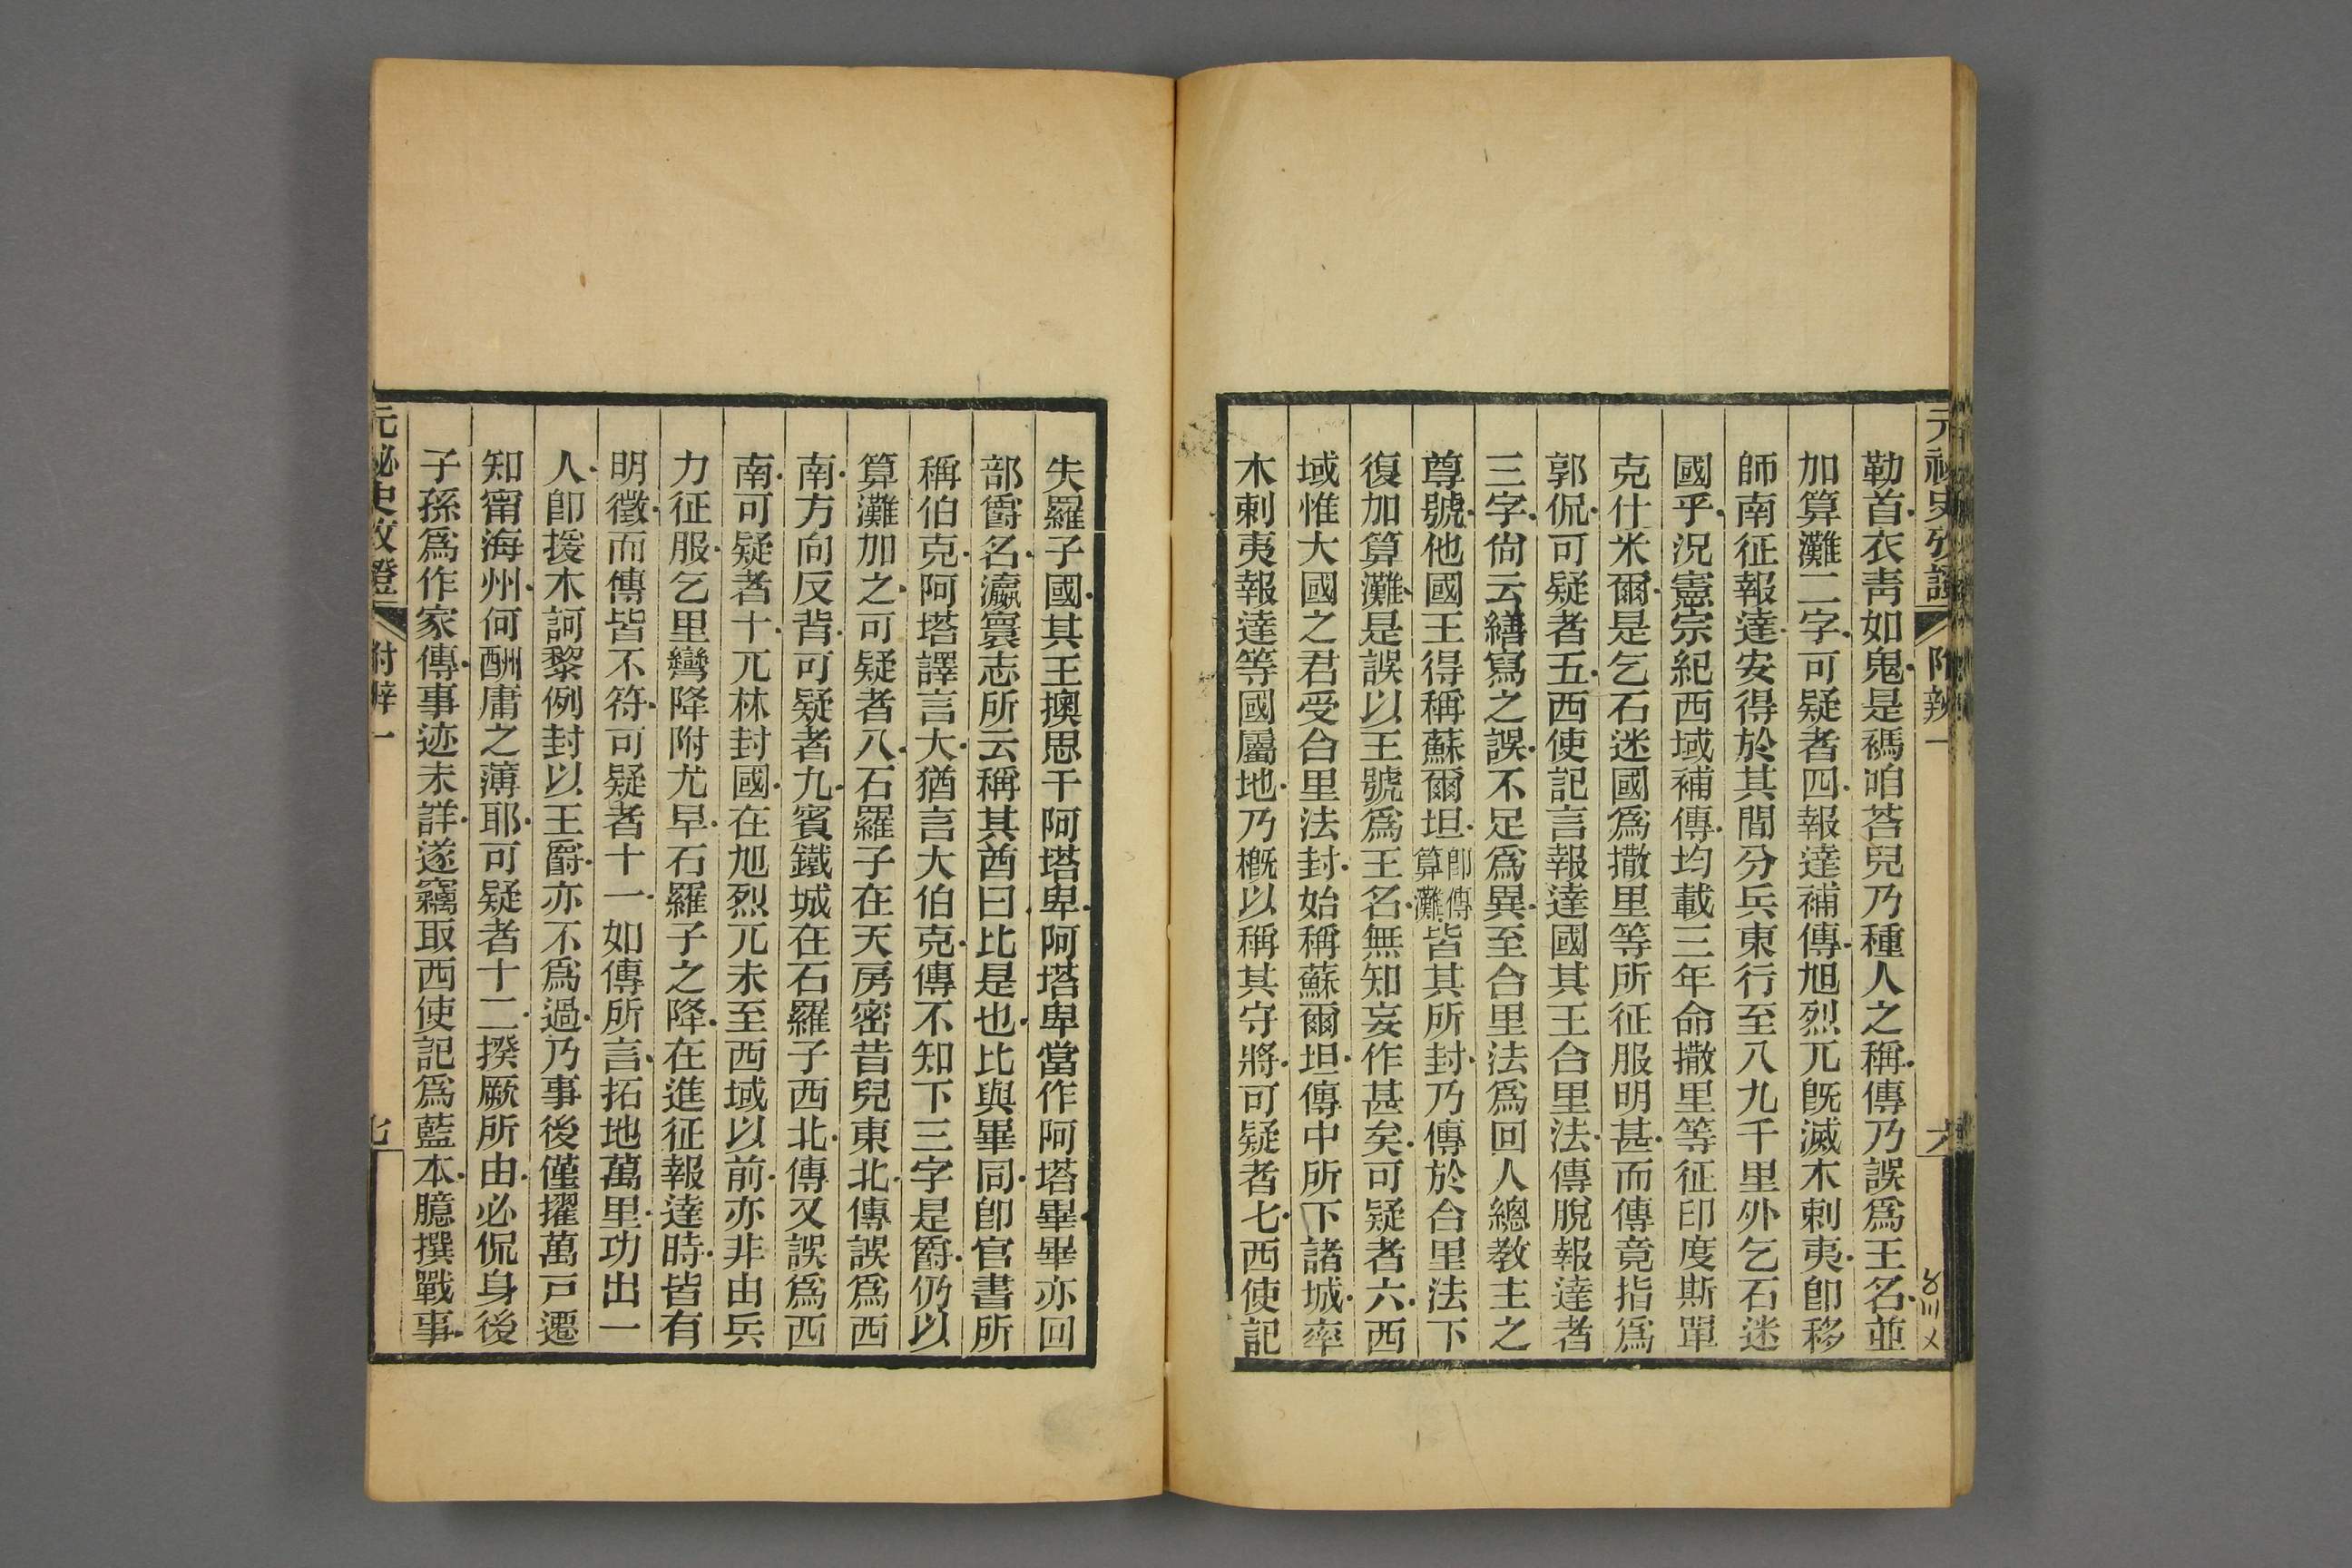 元祕史攷證 附辨一 六
勒首衣靑如鬼是禡咱荅兒乃種人之稱傳乃誤爲王名並
加算灘二字可疑者四報達補傳旭烈兀旣滅木剌夷卽移
師南征報達安得於其間分兵東行至八九千里外乞石迷
國乎況憲宗紀西域補傳均載三年命撒里等征印度斯單
克什米爾是乞石迷國爲撒里等所征服明甚而傳竟指爲
郭侃可疑者五西使記言報達國其王合里法傳脫報達者
三字尙云繕寫之誤不足爲異至合里法爲回人總教主之
尊號他國王得稱蘇爾坦卽傳算灘皆其所封乃傳於合里法下
復加算灘是誤以王號爲王名無知妄作甚矣可疑者六西
域惟大國之君受合里法封始稱蘇爾坦傳中所下諸城率
木剌夷報達等國屬地乃槪以稱其守將可疑者七西使記
失羅子國其王㩲思干阿塔卑阿塔卑當作阿塔畢畢亦回
部爵名瀛寰志所云稱其酋曰比是也比與畢同卽官書所
稱伯克阿塔譯言大猶言大伯克傳不知下三字是爵仍以
算灘加之可疑者八石羅子在天房密昔兒東北傳誤爲西
南方向反背可疑者九賓鐵城在石羅子西北傳又誤爲西
南可疑者十兀林封國在旭烈兀未至西域以前亦非由兵
力征服乞里彎降附尤早石羅子之降在進征報達時皆有
明徵而傳皆不符可疑者十一如傳所言拓地萬里功出一
人卽援木訶黎例封以王爵亦不爲過乃事後僅擢萬戸遷
知甯海州何酬庸之薄耶可疑者十二揆厥所由必侃身後
子孫爲作家傳事迹未詳遂竊取西使記爲藍本臆撰戰事
元祕史攷證 附辨一 七